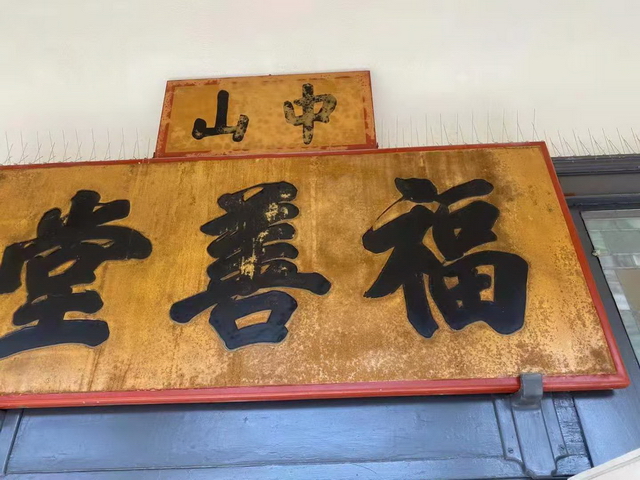 中山
福善堂